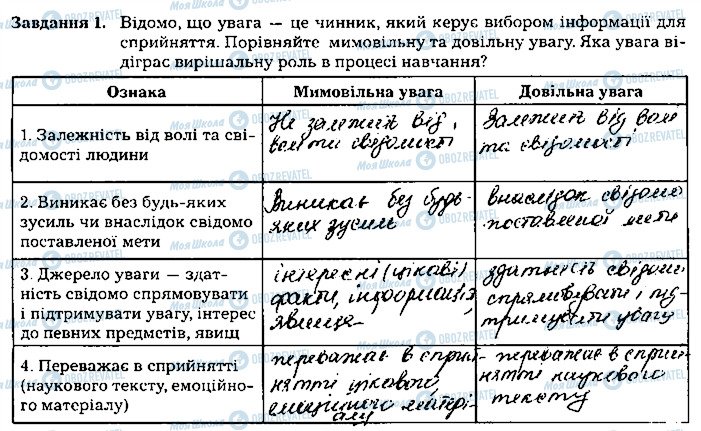 Завдання 1. Відомо, що увага — це чинник, який керує вибором інформації для
сприйняття. Порівняйте мимовільну та довільну увагу. Яка увага ві-
діграє вирішальну роль в процесі навчання?
Ознака Мимовільна увага Довільна увага
1. Залежність від волі та сві-
домості людини
Не залежить від
волі та свідомості
Залежить від волі
та свідомості
2. Виникає без будь-яких
зусиль чи внаслідок свідомо
поставленої мети
Виникає без будь-
яких зусиль
внаслідок свідомо
поставленої мети
3. Джерело уваги — здат-
ність свідомо спрямовувати
і підтримувати увагу, інтерес
до певних предметів, явищ
інтересні (цікаві)
факти, інформація,
явище
здатність свідомо
спрямовувати, під-
тримувати увагу
4. Переважає в сприйнятті
(наукового тексту, емоційно-
го матеріалу)
переважає в сприй-
нятті цікавого,
емоційного матері-
алу
переважає в сприй-
нятті наукового
тексту
Моя Школа OBOZREVATEL